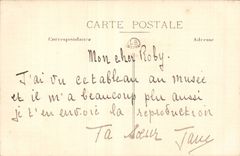 CARTE POSTALE
Correspondance
Adresse
Mon cher Roby.
J'ai vu ce tableau au musée
et il m'a beaucoup plu aussi
je t'en envoie la reproduction
Ta sœur Jane